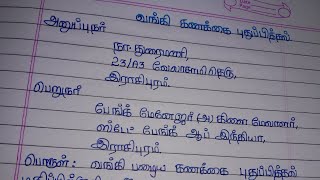 வங்கி கணக்கை புதுப்பித்தல்
அனுப்புநர்
நா. துரைமணி,
23/A3 வேலாசாமி தெரு,
இராசிபுரம்.
பெறுநர்
பேங்க் மேனேஜர் (அ) கிளை மேலாளர்,
ஸ்டேட் பேங்க் ஆப் இந்தியா,
இராசிபுரம்.
பொருள் : வங்கி பழைய கணக்கை புதுப்பித்தல்